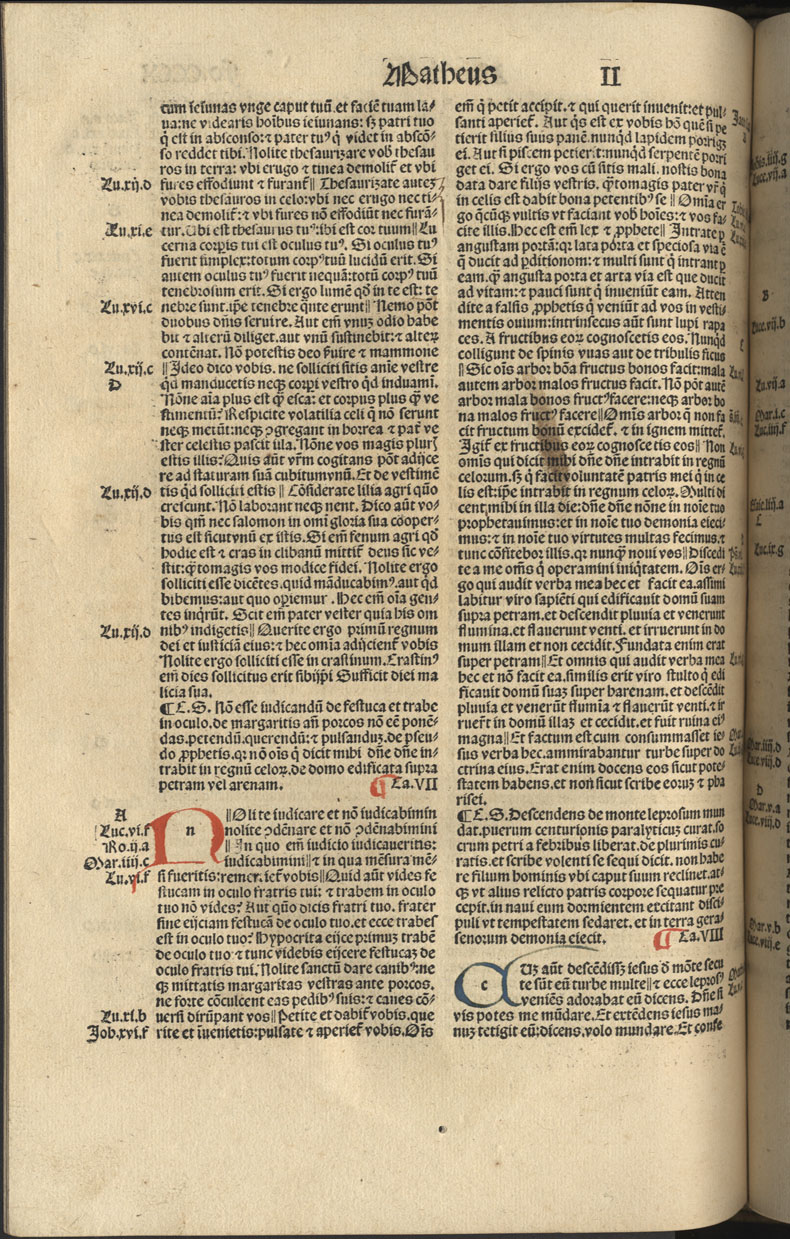 Matheus II
cum ieiunas vnge caput tuū.et faciē tuam la/
ua:ne videaris hoībus ieiunans: sꝫ patri tuo
q̄ est in absconso:⁊ pater tuꝰ q̄ videt in abscō/
so reddet tibi. Nolite thesaurizare vob̄ thesau
ros in terra: vbi erugo ⁊ tinea demolit̄ et vbi
Lu.xij.d fures effodiunt ⁊ furant̄‖ Thesaurizate auteꝫ
vobis thesauros in celo:vbi nec erugo nec ti/
nea demolit̄:⁊ vbi fures nō effodiūt nec furā/
Lu.xi.e tur. Ubi est thesaurus tuꝰ:ibi est cor tuum‖Lu
cerna corpis tui est oculus tuꝰ. Si oculus tuꝰ
fuerit simplex:totum corpꝰ tuū lucidū erit. Si
autem oculus tuꝰ fuerit nequā:totū corpꝰ tuū
tenebrosum erit. Si ergo lumē qd̄ in te est: te
Lu.xvi.c nebre sunt.ip̄e tenebre q̄nte erunt‖ Nemo pōt
duobus dn̄is seruire. Aut em̄ vnuꝫ odio habe
bit ⁊ alterū diliget.aut vnū sustinebit:⁊ alteꝝ
contēnat. Nō potestis deo ẜuire ⁊ mammone
Lu.xij.c ‖Ideo dico vobis. ne solliciti sitis anīe vestre
D qd̄ manducetis neqꝫ corpi vestro qd̄ induamī.
Nōne aīa plus est q̄ꝫ esca: et corpus plus q̄ꝫ ve
stimentū? Respicite volatilia celi q̄ nō serunt
neqꝫ metūt:neqꝫ ꝯgregant in horrea ⁊ pat̄ ve
ster celestis pascit illa. Nōne vos magis plur̄
estis illis? Quis aūt vr̄m cogitans pōt adijce
re ad staturam suā cubitum vnū. Et de vestimē
Lu.xij.d tis qd̄ solliciti estis ‖ Cōsiderate lilia agri quō
crescunt. Nō laborant neqꝫ nent. Dico aūt vo/
bis qm̄ nec salomon in omī gloria sua cooper/
tus est sicut vnū ex istis. Si em̄ fenum agri qd̄
hodie est ⁊ cras in clibanū mittit̄ deus sic ve/
stit:q̄tomagis vos modice fidei. Nolite ergo
solliciti esse dicētes.quid māducabimꝰ.aut qd̄
bibemus:aut quo operiemur. Hec em̄ oīa gen/
tes inqrūt. Scit em̄ pater vester quia his om
Lu.xij.d nibꝰ indigetis‖Querite ergo primū regnum
dei et iusticiā eius:⁊ hec omīa adijcient̄ vobis
Nolite ergo solliciti esse in crastinum. Crastinꝰ
em̄ dies sollicitus erit sibijpi Sufficit diei ma
licia sua.
¶C.S. Nō esse iudicandū de festuca et trabe
in oculo.de margaritis añ porcos nō eē ponē/
das.petendū.querendū:⁊ pulsanduꝫ.de pseu/
do ꝓphetis.qꝛ nō oīs q̄ dicit mihi dn̄e dn̄e in/
trabit in regnū celoꝝ.de domo edificata supra
petram vel arenam. ¶Ca.VII
A ‖Olite iudicare et nō iudicabimin
Luc.vi.f nolite ꝯdēnare et nō ꝯdēnabimini
Ro.ij.a ‖In quo em̄ iudicio iudicaueritis:
Mar.iiij.c iudicabimini‖⁊ in qua mēsura mē/
Lu.vi.f si fueritis:remet̄.iet̄ vobis‖Quid aūt vides fe
stucam in oculo fratris tui: ⁊ trabem in oculo
tuo nō vides? Aut quō dicis fratri tuo. frater
sine eijciam festucā de oculo tuo.et ecce trabes
est in oculo tuo? Hypocrita eijce primuꝫ trabē
de oculo tuo ⁊ tunc videbis eijcere festucaꝫ de
oculo fratris tui. Nolite sanctū dare canibꝰ:ne
qꝫ mittatis margaritas vestras ante porcos.
ne forte cōculcent eas pedibꝰ suis:⁊ canes cō/
Lu.xi.b uersi dirūpant vos‖Petite et dabit̄ vobis.que
Joh.xvi.f rite et īuenietis:pulsate ⁊ aperiet̄ vobis. Oīs
em̄ q̄ petit accipit.⁊ qui querit inuenit:et pul/
santi aperiet̄. Aut q̄s est ex vobis hō quē si pe
tierit filius suus panē.nunqd̄ lapidem porriget
ei. Aut si piscem petierit:nunqd̄ serpentē porri
get ei. Si ergo vos cū sitis mali. nostis bona
data dare filijs vestris. q̄tomagis pater vr̄ q̄
in celis est dabit bona petentibꝰ se ‖Omīa er
go q̄cūqꝫ vultis vt faciant vob̄ hoīes:⁊ vos fa/
cite illis. Hec est em̄ lex ⁊ ꝓphete‖ Intrate ꝑ
angustam portā:qꝛ lata porta et speciosa via ē
q̄ ducit ad ꝑditionem:⁊ multi sunt q̄ intrant ꝑ
eam.q̄ꝫ angusta porta et arta via est que ducit
ad vitam:⁊ pauci sunt q̄ inueniūt eam. Atten
dite a falsis ꝓphetis q̄ veniūt ad vos in vesti/
mentis ouium:intrinsecus aūt sunt lupi rapa
ces. A fructibus eoꝝ cognoscetis eos. Nunqd̄
colligunt de spinis vuas aut de tribulis ficus
‖Sic oīs arbor bōa fructus bonos facit:mala
autem arbor malos fructus facit. Nō pōt autē
arbor mala bonos fructꝰ facere:neqꝫ arbor bo
na malos fructꝰ facere‖Omīs arbor q̄ non fa
cit fructum bonū excidet̄. ⁊ in ignem mittet̄.
Igit̄ ex fructibus eoꝝ cognoscetis eos‖Non
omīs qui dicit mihi dn̄e dn̄e intrabit in regnū
celorum.sꝫ q̄ facit voluntatē patris mei q̄ in ce
lis est:ip̄e intrabit in regnum celoꝝ. Multi di
cent mihi in illa die:dn̄e dn̄e nōne in noīe tuo
prophetauimus:et in noīe tuo demonia eieci/
mus:⁊ in noīe tuo virtutes multas fecimus.⁊
tunc cōfitebor illis.qꝛ nunqꝫ noui vos‖Discedi
te a me omīs q̄ operamini iniqtatem. Oīs er/
go qui audit verba mea hec et facit ea.assimi
labitur viro sapiēti qui edificauit domū suam
supra petram.et descendit pluuia et venerunt
flumina.et flauerunt venti. et irruerunt in do
mum illam et non cecidit. Fundata enim erat
super petram‖Et omnis qui audit verba mea
hec et nō facit ea.similis erit viro stulto q̄ edi
ficauit domū suaꝫ super harenam.et descēdit
pluuia et venerūt flumīa ⁊ flauerūt venti.⁊ ir
ruer̄t in domū illaꝫ et cecidit.et fuit ruina eiꝰ
magna‖Et factum est cum consummasset ie/
sus verba hec.ammirabantur turbe super do
ctrina eius. Erat enim docens eos sicut pote/
statem habens.et non sicut scribe eoruꝫ ⁊ pha
risei.
¶C.S. Descendens de monte leprosum mun
dat.puerum centurionis paralyticuꝫ curat.so
crum petri a febribus liberat.de plurimis cu/
ratis.et scribe volenti se sequi dicit. non habe
re filium hominis vbi caput suum reclinet.at/
qꝫ vt alius relicto patris corpore sequatur pre
cepit.in naui eum dormientem excitant disci/
puli vt tempestatem sedaret.et in terra gera/
senorum demonia eiecit. ¶Ca.VIII
Uꝫ aūt descēdissꝫ iesus d̄ mōte secu
te sūt eū turbe multe‖⁊ ecce leprosꝰ
veniēs adorabat eū dicens. Dn̄e si
vis potes me mūdare. Et extēdens iesus ma/
nuꝫ tetigit eū:dicens.volo mundare. Et confe